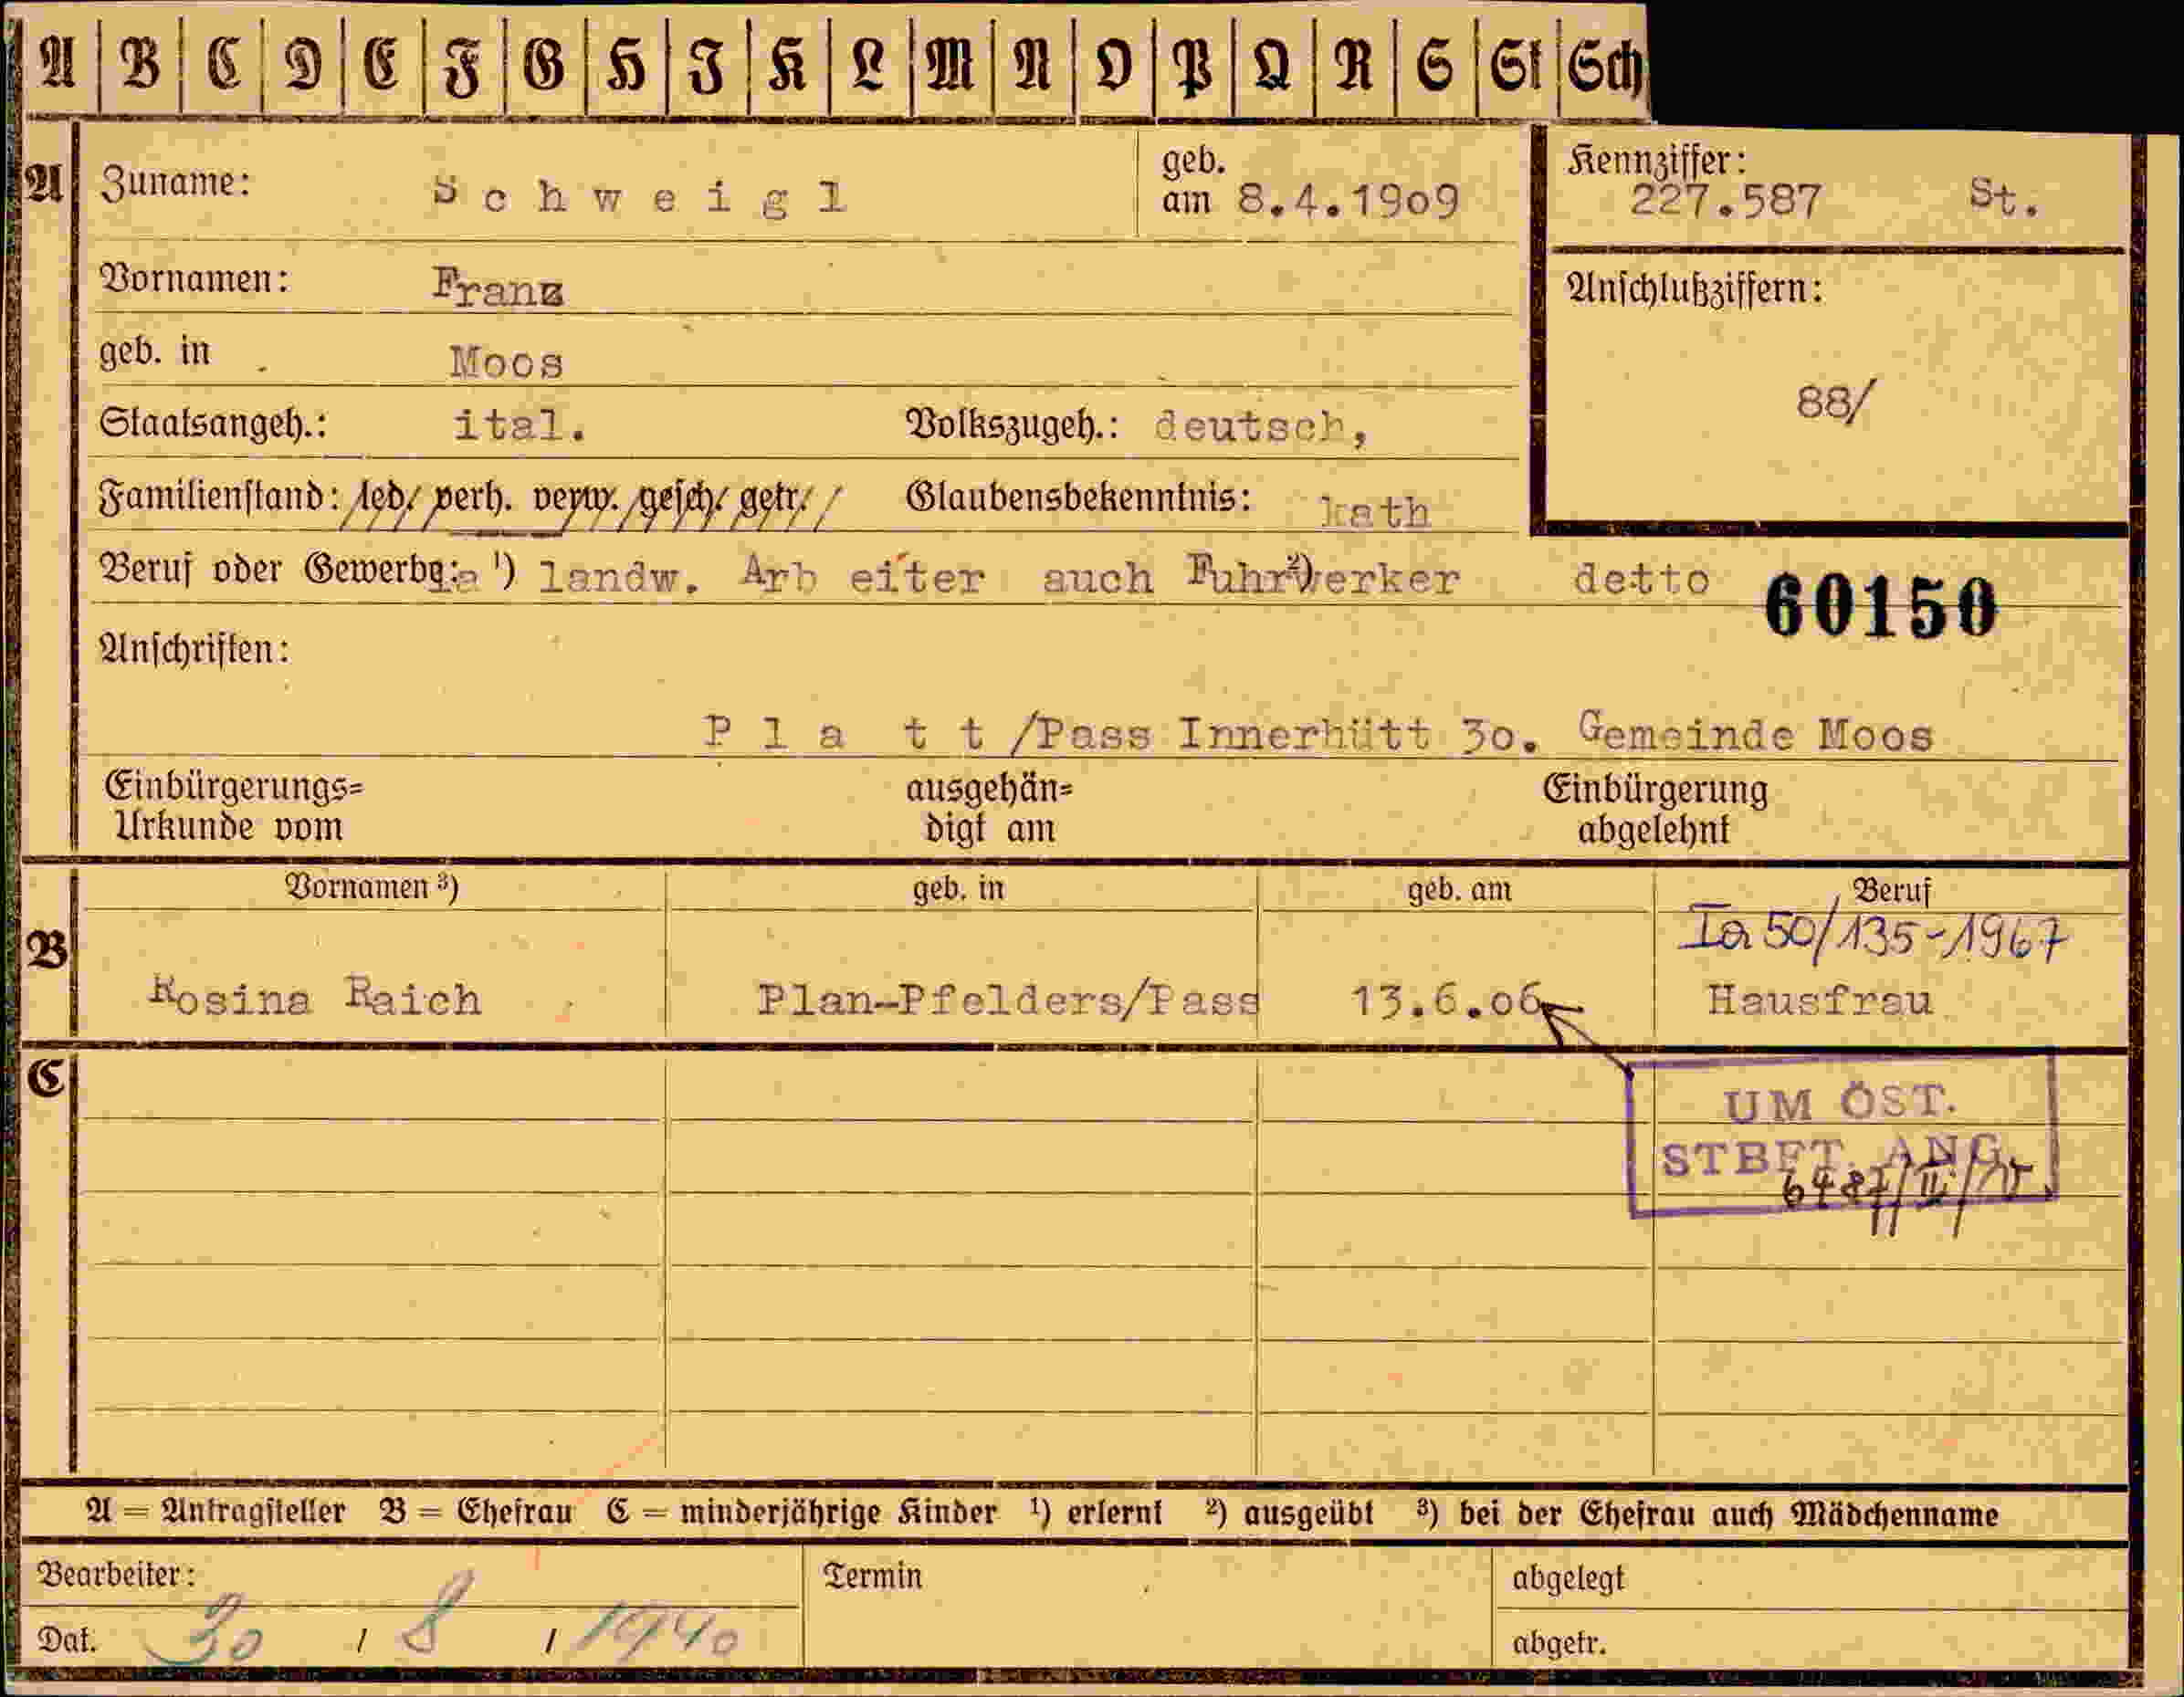 A B C D E F G H I K L M N O P Q R S St Sch
A Zuname: Schweigl geb. am 8.4.1909 Kennziffer: 227.587 St.
Vornamen: Franz Anschlußziffern:
geb. in Moos
88/
Staatsangeh.: ital. Volkszugeh.: deutsch,
Familienstand: led. verh. verw. gesch. getr. Glaubensbekenntnis: kath
Beruf oder Gewerbe: ¹) landw. Arb eiter auch Fuhrwerker ²) detto 60150
Anschriften:
P l a t t /Pass Innerhütt 30. Gemeinde Moos
Einbürgerungs= Urkunde vom ausgehän= digt am Einbürgerung abgelehnt
Vornamen ³) geb. in geb. am Beruf
B Ia 50/135-1967
Rosina Raich Plan-Pfelders/Pass 13.6.06 Hausfrau
C
UM ÖST.
STBFT. ANG.
A = Antragsteller B = Ehefrau C = minderjährige Kinder ¹) erlernt ²) ausgeübt ³) bei der Ehefrau auch Mädchenname
Bearbeiter: Termin abgelegt
Dat. 30 / 8 / 1940 abgetr.